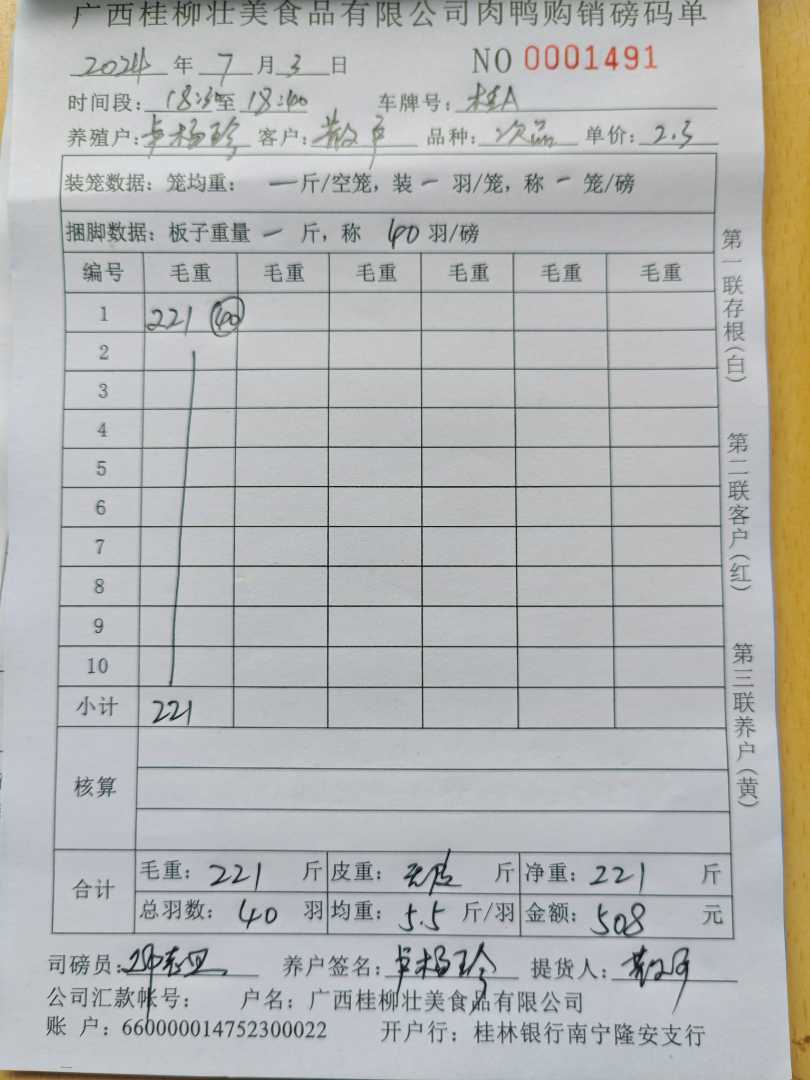 广西桂柳壮美食品有限公司肉鸭购销磅码单
2024 年 7 月 3 日 NO 0001491
时间段: 18:30至 18:40 车牌号: 桂A
养殖户: 卓杨珍 客户: 散户 品种: 次品 单价: 2.3
装笼数据: 笼均重: 一斤/空笼, 装 一 羽/笼, 称 一 笼/磅
捆脚数据: 板子重量 一 斤, 称 40 羽/磅
编号 毛重 毛重 毛重 毛重 毛重 毛重
1 221 40
2
3
4
5
6
7
8
9
10
小计 221
核算
合计
毛重: 221 斤 皮重: 无皮 斤 净重: 221 斤
总羽数: 40 羽 均重: 5.5 斤/羽 金额: 508 元
司磅员: 养户签名: 卓杨珍 提货人: 散户
公司汇款帐号: 户名: 广西桂柳壮美食品有限公司
账 户: 660000014752300022 开户行: 桂林银行南宁隆安支行
第一联存根(白)
第二联客户(红)
第三联养户(黄)